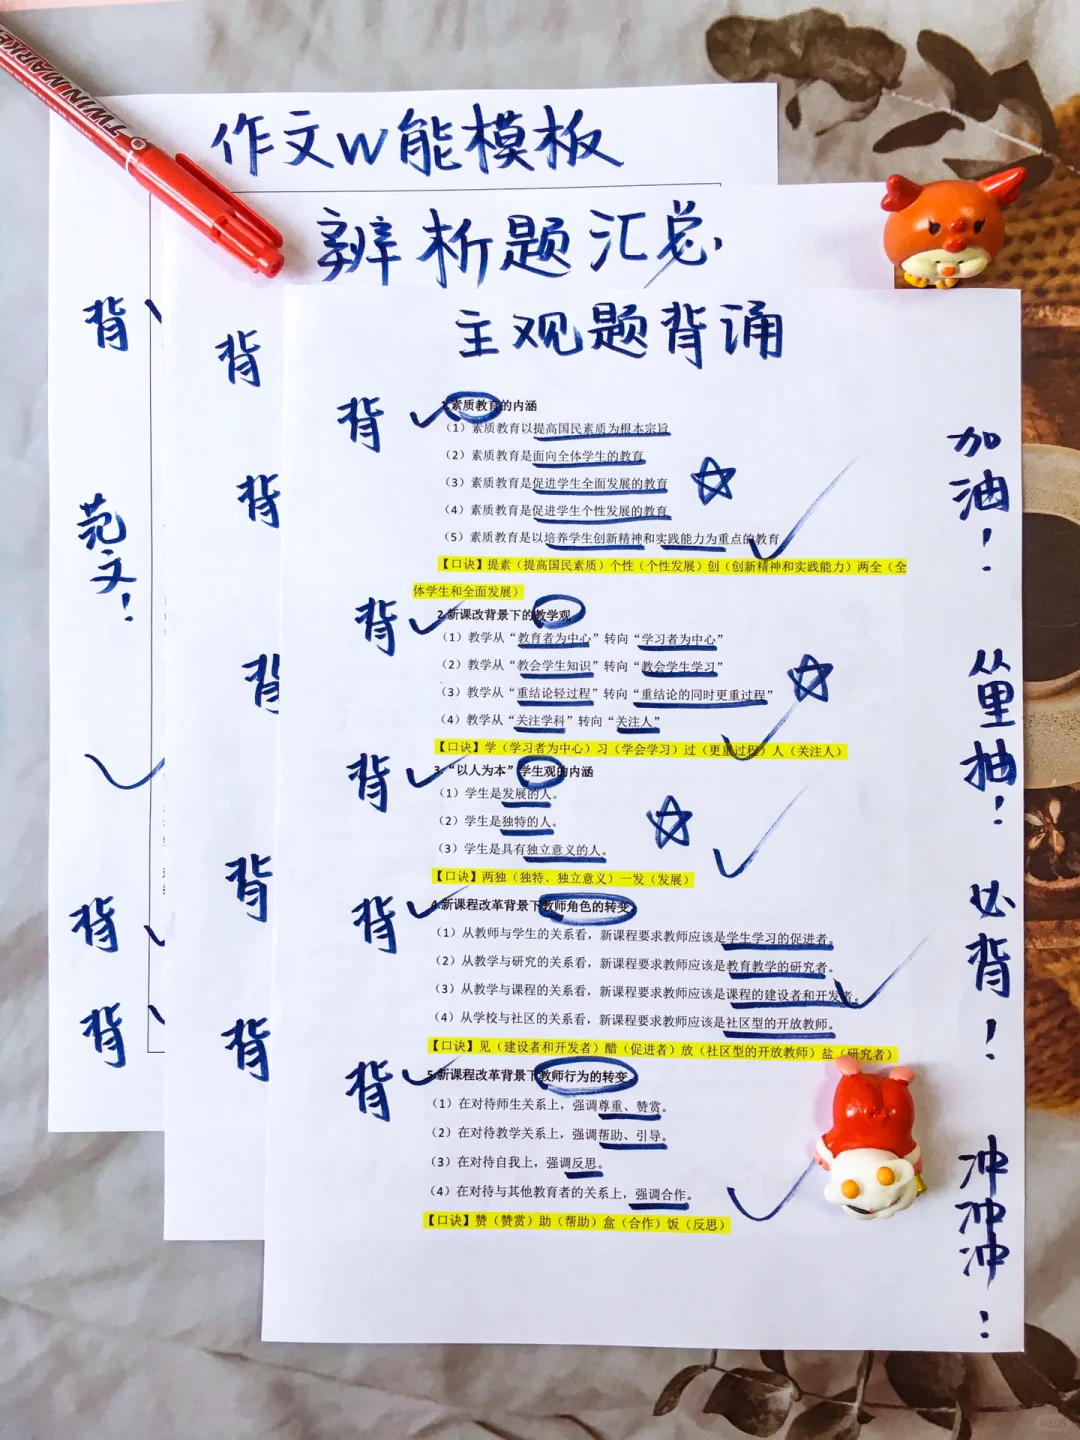 TWIN MARKE
作文w能模板
辨析题汇总
主观题背诵
背
背
背
背
范文!
背
背
背
背
背
背
背
背
背
背
1.素质教育的内涵
（1）素质教育以提高国民素质为根本宗旨
（2）素质教育是面向全体学生的教育
（3）素质教育是促进学生全面发展的教育
（4）素质教育是促进学生个性发展的教育
（5）素质教育是以培养学生创新精神和实践能力为重点的教育
【口诀】提素（提高国民素质）个性（个性发展）创（创新精神和实践能力）两全（全
体学生和全面发展）
2.新课改背景下的教学观
（1）教学从“教育者为中心”转向“学习者为中心”
（2）教学从“教会学生知识”转向“教会学生学习”
（3）教学从“重结论轻过程”转向“重结论的同时更重过程”
（4）教学从“关注学科”转向“关注人”
【口诀】学（学习者为中心）习（学会学习）过（更重过程）人（关注人）
3.“以人为本”学生观的内涵
（1）学生是发展的人。
（2）学生是独特的人。
（3）学生是具有独立意义的人。
【口诀】两独（独特、独立意义）一发（发展）
4.新课程改革背景下教师角色的转变
（1）从教师与学生的关系看，新课程要求教师应该是学生学习的促进者。
（2）从教学与研究的关系看，新课程要求教师应该是教育教学的研究者。
（3）从教学与课程的关系看，新课程要求教师应该是课程的建设者和开发者。
（4）从学校与社区的关系看，新课程要求教师应该是社区型的开放教师。
【口诀】见（建设者和开发者）醋（促进者）放（社区型的开放教师）盐（研究者）
5.新课程改革背景下教师行为的转变
（1）在对待师生关系上，强调尊重、赞赏。
（2）在对待教学关系上，强调帮助、引导。
（3）在对待自我上，强调反思。
（4）在对待与其他教育者的关系上，强调合作。
【口诀】赞（赞赏）助（帮助）盒（合作）饭（反思）
加油！
从里抽！
必背！
冲冲冲！